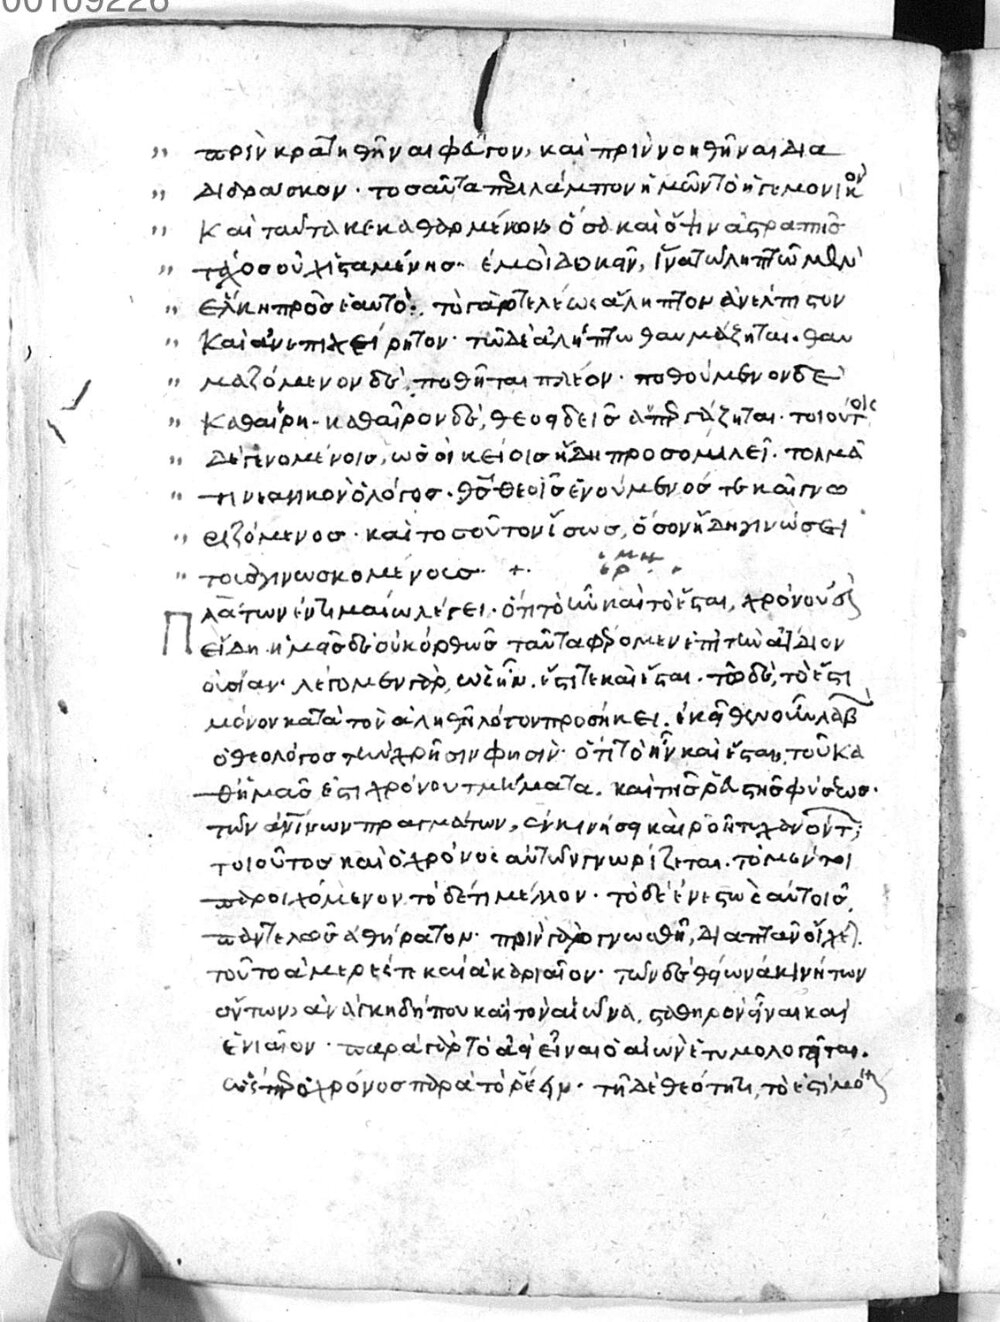 00109226
πρὶν κρατηθῆναι φεῦγον, καὶ πρὶν νοηθῆναι δια
διδράσκον· τοσαῦτα περιλάμπον ἡμῶν τὸ ἡγεμονικὸν
καὶ ταῦτα κεκαθαρμένον, ὅσα καὶ ὄψιν ἀστραπῆς
τάχος οὐχ ἱσταμένης· ἐμοὶ δοκεῖν, ἵνα τῷ ληπτῷ μὲν
ἕλκῃ πρὸς ἑαυτό· τὸ γὰρ τελέως ἄληπτον ἀνέλπιστον
καὶ ἀνεπιχείρητον· τῷ δὲ ἀλήπτῳ θαυμάζηται· θαυ
μαζόμενον δὲ, ποθῆται πλέον· ποθούμενον δὲ
καθαίρῃ· καθαῖρον δὲ, θεοειδεῖς ἀπεργάζηται· τοιούτοις
δὲ γενομένοις, ὡς οἰκείοις ἤδη προσομιλεῖ· τολμᾶ
τι νεανικὸν ὁ λόγος· θεὸς θεοῖς ἑνούμενός τε καὶ γνω
ριζόμενος· καὶ τοσοῦτον ἴσως, ὅσον ἤδη γινώσκει
τοὺς γινωσκομένους· +
Πλάτων ἐν τιμαίω λέγει· ὅτι τὸ ἦν καὶ τὸ ἔσται, χρόνου εἰσὶν
εἴδη· ἡμᾶς δὲ οὐκ ὀρθῶς ταῦτα φέρομεν ἐπὶ τὴν ἀΐδιον
οὐσίαν· λέγομεν γὰρ, ὡς ἦν. ἔστι τε καὶ ἔσται· τῷ δὲ, τὸ ἔστι
μόνον κατὰ τὸν ἀληθῆ λόγον προσήκει. ἐκεῖθεν οὖν λαβὼν
ὁ θεολόγος τὴν χρῆσιν φησὶν· ὅτι τὸ ἦν καὶ ἔσται, τοῦ κα
θ' ἡμᾶς ἐστι χρόνου τμήματα. καὶ τῆς ῥευστῆς φύσεως·
τῶν αἰτίων πραγμάτων, ἐν κινήσει καὶ ροῆ τυγχανόντων
τοιοῦτος καὶ ὁ χρόνος αὐτῶν γνωρίζεται. τὸ μέν τοι
παροιχόμενον τὸ δέ τι μέλλον· τὸ δὲ ἐνεστὼς αὐτοῖς,
παντελῶς ἀθήρατον· πρὶν γὰρ γνωσθῆ, διαπτὰν οἴχεται.
τοῦτο ἀμερές τι καὶ ἀκαριαῖον· τῶν δὲ θείων ἀκινήτων
ὄντων, ἀνάγκη δήπου καὶ τὸν αἰῶνα, σταθηρὸν εἶναι καὶ
ἑνιαῖον· παρὰ γὰρ τὸ ἀεὶ εἶναι ὁ αἰὼν ἐτυμολογεῖται.
ὥσπερ ὁ χρόνος παρὰ τὸ ῥέειν· τῆ δὲ θεότητι, τὸ ἔστι μόνον